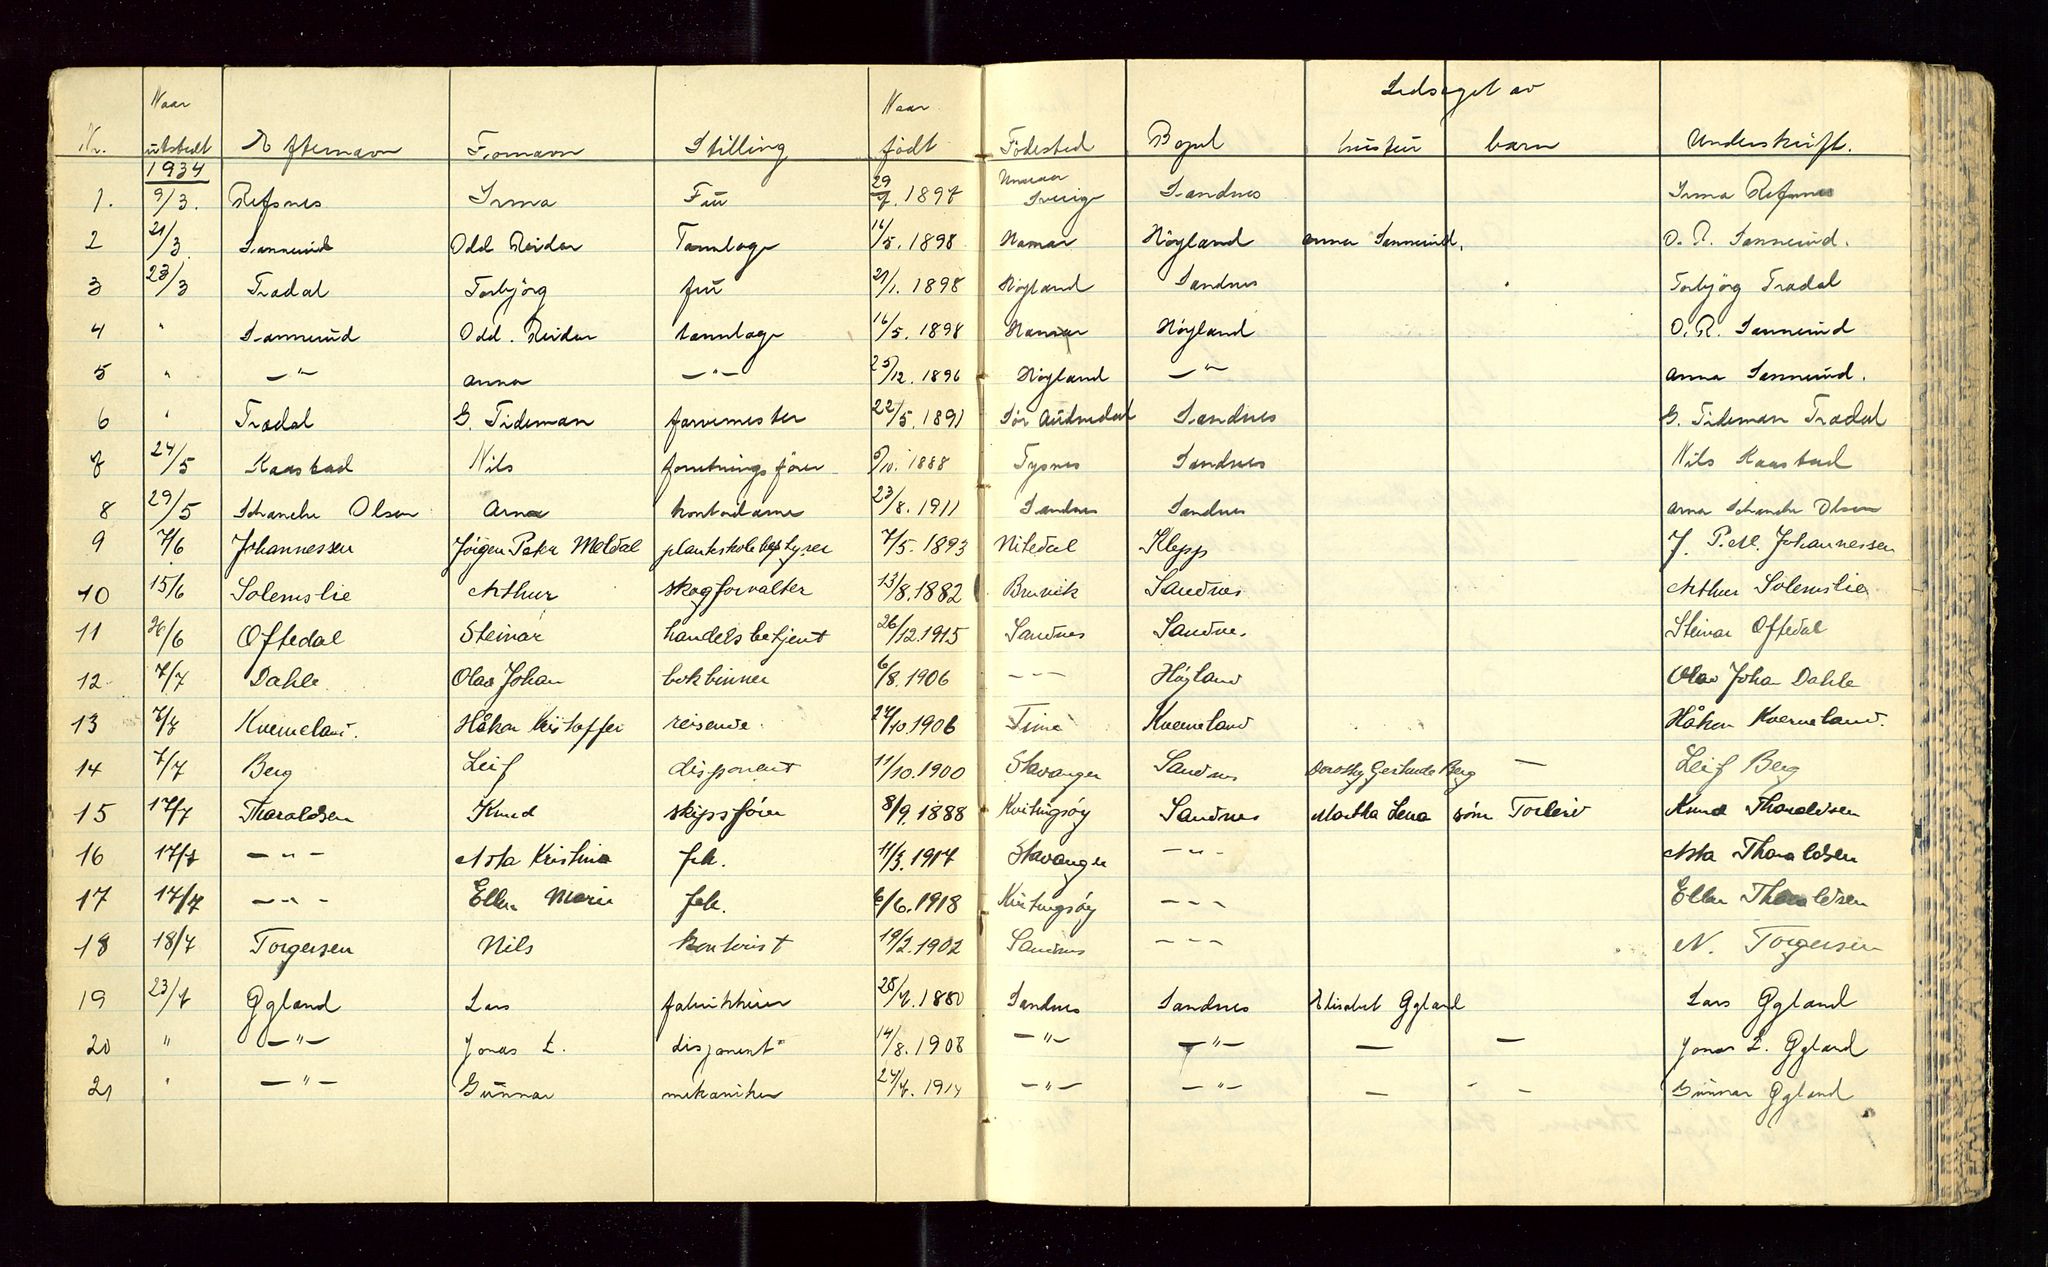 Ledsaget av
Nr. Naar utstedt Efternavn Fornavn Stilling Naar født Fødested Bopel hustru barn Underskrift.
1934
1. 9/3. Refsnes Irma Fru 29/7. 1897 Sverige Sandnes Irma Refsnes
2 21/3. Sannerud Odd Reidar Tannlæge 16/5. 1898 Hamar Høyland Anna Sannerud. O. R. Sannerud.
3 23/3 Tradal Torbjörg fru 21/1. 1898 Høyland Sandnes Torbjörg Tradal
4 " Sannerud Odd. Reidar tannlæge 16/5. 1898 Hamar Høyland O. R. Sannerud
5 " — " — Anna — " — 25/12. 1896 Høyland — " Anna Sannerud.
6 " Tradal G. Tideman farvemester 22/5. 1891 Sør Audnedal Sandnes G. Tideman Tradal
7 24/5 Kaastad Nils forretningsfører /10. 1888 Tysnes Sandnes Nils Kaastad
8 29/5 Schanche Olsen Arna kontordame 23/8. 1911 Sandnes Sandnes Arna Schanche Olsen
9 7/6 Johannessen Jörgen Peter Meldal planteskolebestyrer 7/5. 1893 Nitedal Klepp J. P. M. Johannessen
10 15/6 Solemslie Arthur skogforvalter 13/8. 1882 Bruvik Sandnes Arthur Solemslie
11 26/6 Oftedal Steinar handelsbetjent 26/12. 1915 Sandnes Sandnes Steinar Oftedal
12 7/7 Dahle Olav Johan bokbinner 6/8. 1906 - - - Høyland Olav Johan Dahle
13 7/7 Kverneland. Håkon Kristoffer reisende. 27/10. 1906 Time Kverneland Håkon Kverneland.
14 7/7 Berg Leif disponent 11/10. 1900 Stavanger Sandnes Dorothy Gertrude Berg — Leif Berg
15 17/7 Tharaldsen Knud skipsfører 8/9. 1888 Kvitingsøy Sandnes Martha Lena sønn Torleiv Knud Tharaldsen
16 17/7 — " - Asta Kristine frk. 11/3. 1917 Stavanger - " - Asta Tharaldsen
17 17/7 — " - Ellen Marie frk. 6/6. 1918 Kvitingsøy - - - Ellen Tharaldsen
18 18/7 Torgersen Nils kontorist 19/2. 1902 Sandnes - - - N. Torgersen
19 23/7 Øgland Lars fabrikkeier 28/7. 1880 Sandnes Sandnes Elisabet Øgland Lars Øgland
20 " — " — Jonas E. disponent 14/8. 1908 — " — — " — — — Jonas E. Øgland
21 " — " — Gunnar mekaniker 27/7. 1914 — " — — " — — — Gunnar Øgland